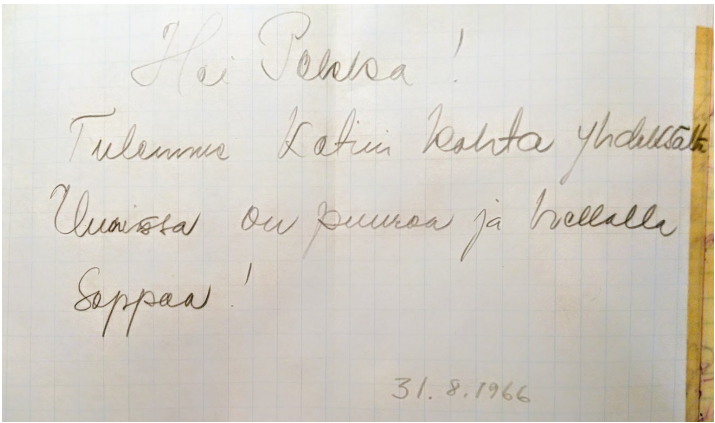 Hei Pekka!
Tulemme Kotiin kohta yhdeksältä
Uunissa on puuroa ja hellalla
Soppaa!
31.8.1966